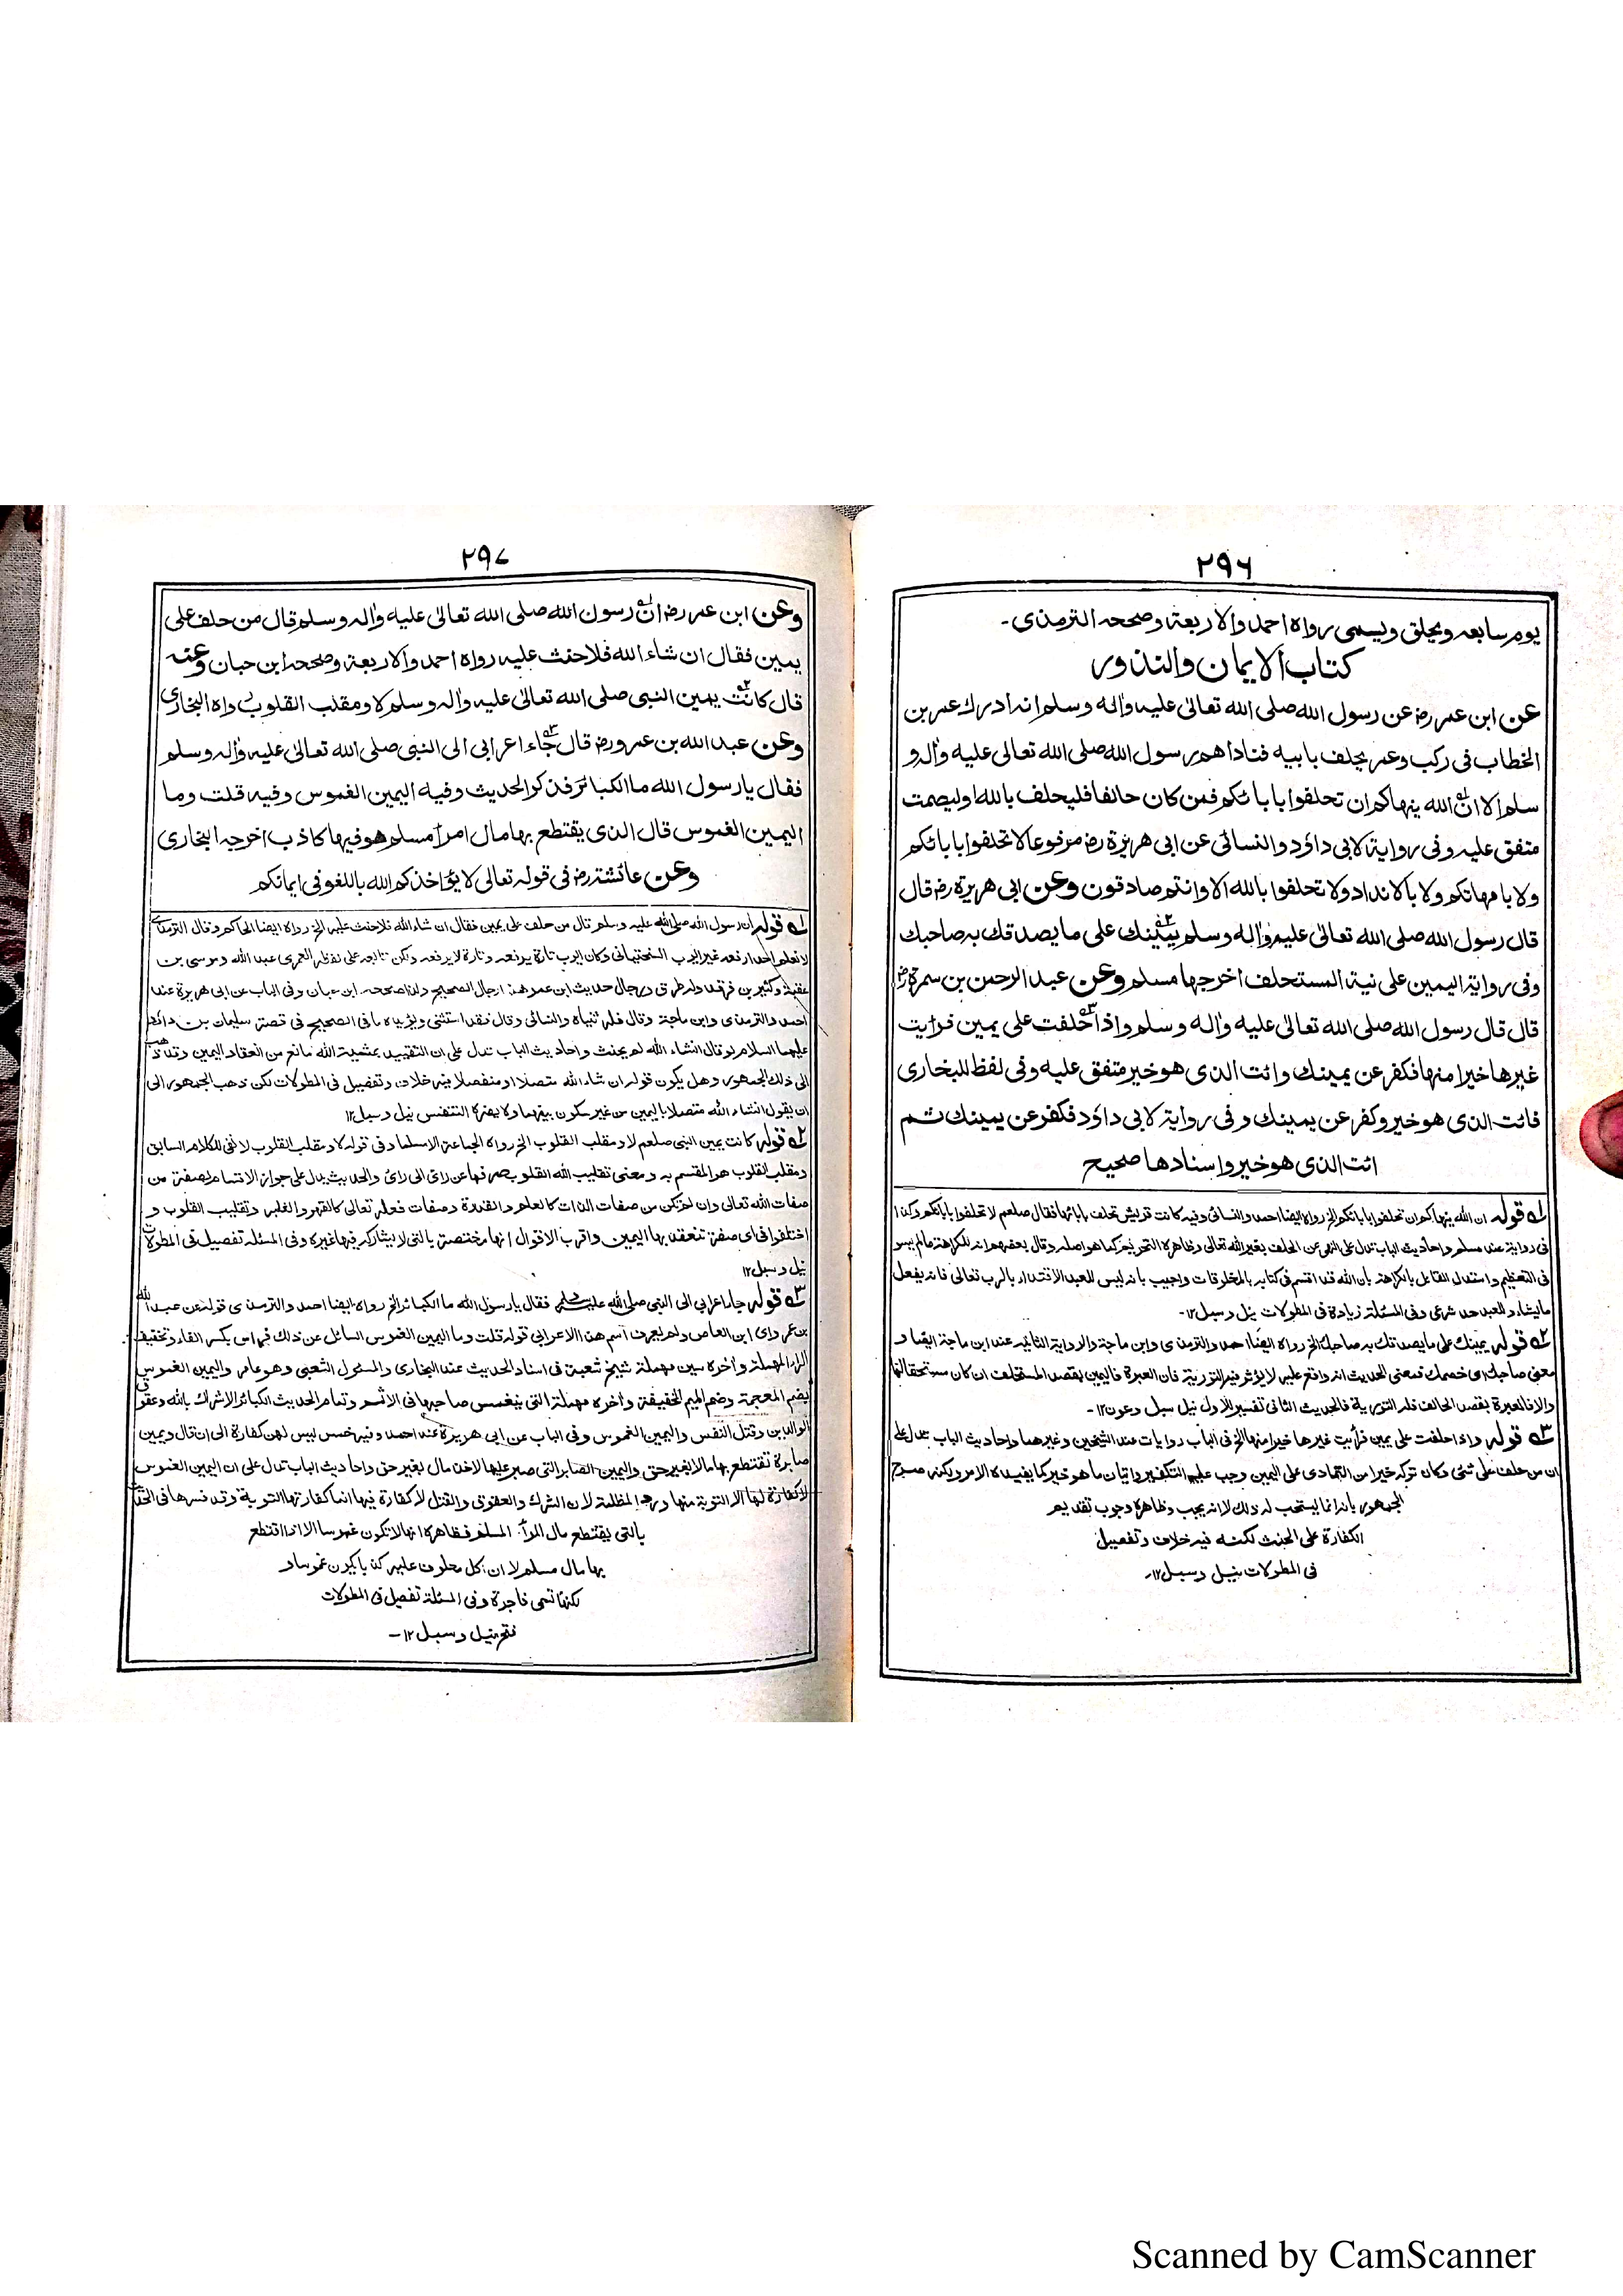 ٢٩٦
يوم سابعه ويحلق ويسمى رواه احمد والاربعة وصححه الترمذى۔
كتاب الايمان والنذور
عن ابن عمر رض عن رسول الله صلى الله تعالى عليه واله وسلم انه ادرك عمر بن
الخطاب فى ركب وعمر يحلف بابيه فناداهم رسول الله صلى الله تعالى عليه واله و
سلم الا ان الله ينهاكم ان تحلفوا بابائكم فمن كان حالفا فليحلف بالله اوليصمت
متفق عليه وفى رواية لابى داؤد والنسائى عن ابى هريرة رض مرفوعا لا تحلفوا بابائكم
ولا بامهاتكم ولا بالانداد ولا تحلفوا بالله الا وانتم صادقون وعن ابى هريرة رض قال
قال رسول الله صلى الله تعالى عليه واله وسلم يمينك على ما يصدقك به صاحبك
وفى رواية اليمين على نية المستحلف اخرجها مسلم وعن عبد الرحمن بن سمرة رض
قال قال رسول الله صلى الله تعالى عليه واله وسلم واذا حلفت على يمين فرايت
غيرها خيرا منها فكفر عن يمينك وائت الذى هو خير متفق عليه وفى لفظ للبخارى
فائت الذى هو خير وكفر عن يمينك وفى رواية لابى داؤد فكفر عن يمينك ثم
ائت الذى هو خير واسنادها صحيح
١ قوله ان الله ينهاكم ان تحلفوا بابائكم الخ رواه ايضا احمد والنسائى وفيه كانت قريش تحلف بابائها فقال صلعم لا تحلفوا بابائكم وكذا
فى رواية عند مسلم واحاديث الباب تدل على النهى عن الحلف بغير الله تعالى وظاهره التحريم كما هو اصله وقال بعضهم انه للكراهة مالم يسو
فى التعظيم واستدل القائل بالكراهة بان الله قد اقسم فى كتابه بالمخلوقات واجيب بانه ليس للعبد الاقتداء بالرب تعالى فانه يفعل
مايشاء وللعبد حد شرعى وفى المسئلة زيادة فى المطولات نيل وسبل ١٢۔
٢ قوله يمينك على ما يصدقك به صاحبك الخ رواه ايضا احمد والترمذى وابن ماجة والرواية الثانيه عند ابن ماجة ايضا و
معنى صاحبك اى خصمك فمعنى الحديث انه واقع عليه لا يؤثر فيه التورية فان العبرة فاليمين بقصد المستحلف ان كان مستحقا لها
والا فالعبرة بقصد الحالف فله التورية فالحديث الثانى تفسير للاول نيل سبل وعون ١٢۔
٣ قوله واذا حلفت على يمين فرأيت غيرها خيرا منها الخ فى الباب روايات عند الشيخين وغيرهما واحاديث الباب تدل على
ان من حلف على شئى وكان تركه خيرا من التمادى على اليمين وجب عليه التكفير واتيان ما هو خير كما يفيده الامر ولكنه صرح
الجمهور بانه انما يستحب له ذلك لا انه يجب وظاهره وجوب تقديم
الكفارة على الحنث لكنه فيه خلاف وتفصيل
فى المطولات نيل وسبل ١٢۔
٢٩٧
وعن ابن عمر رض ان رسول الله صلى الله تعالى عليه واله وسلم قال من حلف على
يمين فقال ان شاء الله فلاحنث عليه رواه احمد والاربعة وصححه ابن حبان وعنه
قال كانت يمين النبى صلى الله تعالى عليه واله وسلم لا ومقلب القلوب رواه البخارى
وعن عبد الله بن عمرو رض قال جاء اعرابى الى النبى صلى الله تعالى عليه واله وسلم
فقال يا رسول الله ما الكبائر فذكر الحديث وفيه اليمين الغموس وفيه قلت وما
اليمين الغموس قال الذى يقتطع بها مال امرأ مسلم هو فيها كاذب اخرجه البخارى
وعن عائشة رض فى قوله تعالى لا يؤاخذكم الله باللغو فى ايمانكم
١ قوله ان رسول الله صلى الله عليه وسلم قال من حلف على يمين فقال ان شاء الله فلاحنث عليه الخ رواه ايضا الحاكم وقال الترمذى
لا نعلم احدا رفعه غير ايوب السختيانى وكان ايوب تارة يرفعه وتارة لا يرفعه ولكن تابعه على رفعه العمرى عبد الله وموسى بن
عقبة وكثير بن فرقد وله طرق ورجال حديث ابن عمر هذا رجال الصحيح ولذا صححه ابن حبان وفى الباب عن ابى هريرة عند
احمد والترمذى وابن ماجة وقال فله ثنياه والنسائى وقال فقد استثنى ويؤيده ما فى الصحيح فى قصة سليمان بن داؤد
عليهما السلام لو قال انشاء الله لم يحنث واحاديث الباب تدل على ان التقييد بمشية الله مانع من انعقاد اليمين وقد ذهب
الى ذلك الجمهور وهل يكون قوله ان شاء الله متصلا او منفصلا فيه خلاف وتفصيل فى المطولات لكن ذهب الجمهور الى
ان يقول انشاء الله متصلا باليمين من غير سكون بينهما ولا يضره التنفس نيل وسبل ١٢
٢ قوله كانت يمين النبى صلعم لا ومقلب القلوب الخ رواه الجماعة الا مسلما وفى قوله لا ومقلب القلوب لا نفى للكلام السابق
ومقلب القلوب هو المقسم به ومعنى تقليب الله القلوب صرفها عن رائ الى رائ والحديث يدل على جواز الاقتسام بصفة من
صفات الله تعالى وان لم تكن من صفات الذات كالعلم والقدرة وصفات فعله تعالى كالقهر والغلبه وتقليب القلوب و
اختلفوا فى اى صفة تنعقد بها اليمين واقرب الاقوال انها مختصة بالتى لا يشاركه فيها غيره وفى المسئله تفصيل فى المطولات
نيل وسبل ١٢
٣ قوله جاء اعرابى الى النبى صلى الله عليه وسلم فقال يا رسول الله ما الكبائر الخ رواه ايضا احمد والترمذى قوله عن عبد الله
بن عمرو اى ابن العاص ولم يعرف اسم هذا الاعرابى قوله قلت وما اليمين الغموس السائل عن ذلك فراس بكسر الفاء وتخفيف
الراء المهملة وآخره سين مهملة شيخ شعبة فى اسناد الحديث عند البخارى والمسئول الشعبى وهو عامر واليمين الغموس
بضم المعجمة وضم الميم الخفيفة وآخره مهملة التى ينغمس صاحبها فى الاثم وتمام الحديث الكبائر الاشراك بالله وعقوق
الوالدين وقتل النفس واليمين الغموس وفى الباب عن ابى هريرة عند احمد وفيه خمس ليس لهن كفارة الى ان قال ويمين
صابرة تقتطع بها مالا بغير حق واليمين الصابر التى صبر عليها لاخذ مال بغير حق واحاديث الباب تدل على ان اليمين الغموس
لا كفارة لها الا التوبة منها ورد المظلمة لان الشرك والعقوق والقتل لا كفارة فيها انما كفارتها التوبة وقد فسرها فى الحديث
بالتى يقتطع مال المرأ المسلم فظاهره انها لا تكون غموسا الا اذا اقتطع
بها مال مسلم لا ان كل محلوف عليه كذبا يكون غموسا و
لكنها تسمى فاجرة وفى المسئلة تفصيل فى المطولات
فتح نيل وسبل ١٢۔
Scanned by CamScanner